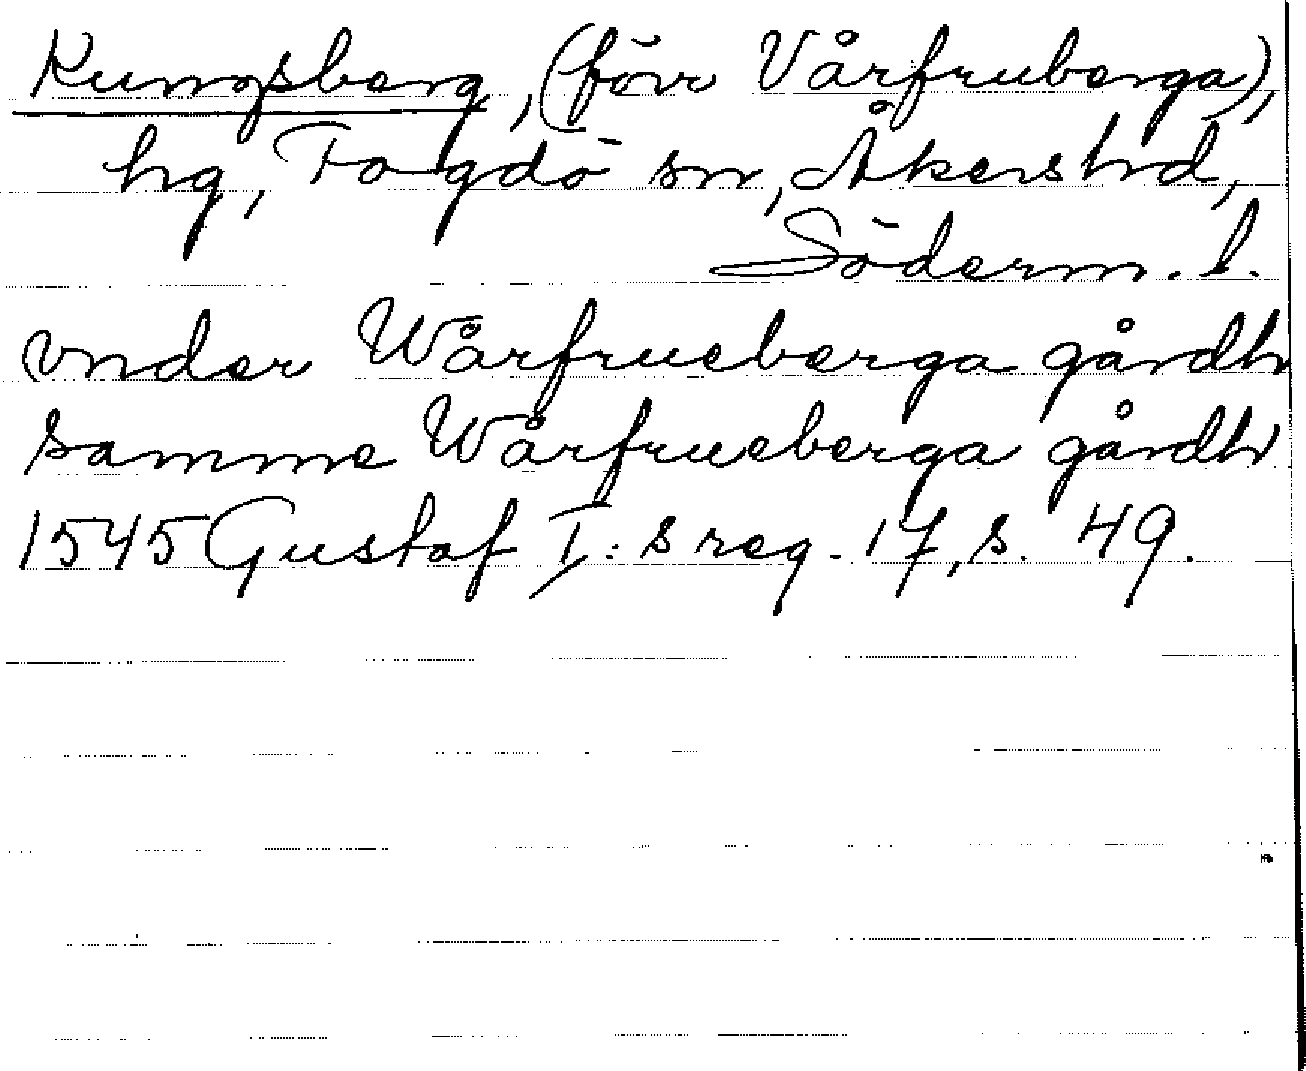 Kungsberg, (förr Vårfruberga),
hg, Fogdö sn, Åkers hd,
Söderm. l.
vnder Wårfrueberga gårdh
samme Wårfrueberga gårdh
1545 Gustaf I:s reg. 17, s. 49.